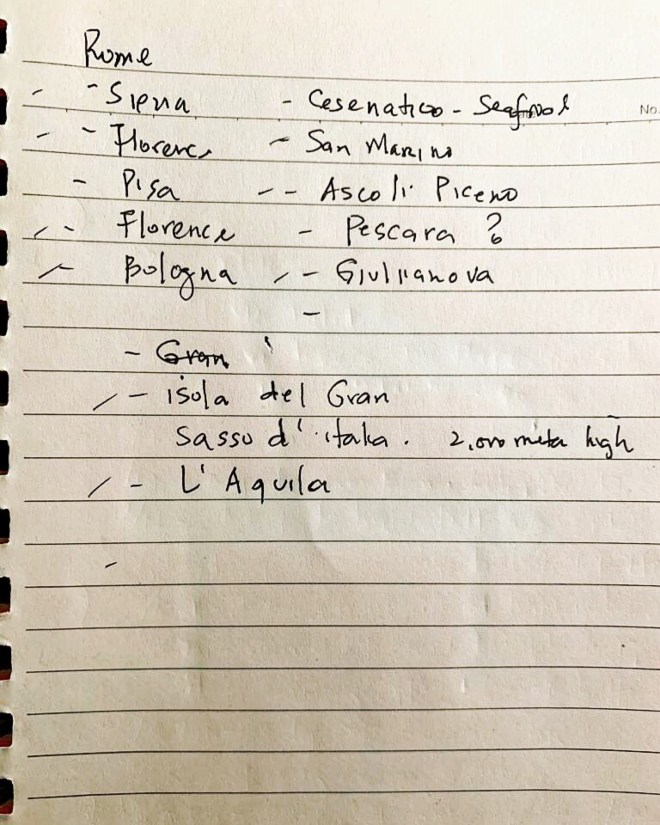 Rome
- - Siena - Cesenatico - Seafood No.
- - Florence - San Marino
- Pisa - - Ascoli Piceno
- - Florence - Pescara ?
- Bologna - - Giulianova
-
- Gran
- - isola del Gran
Sasso d'italia. 2,000 meta high
- - L'Aquila
-